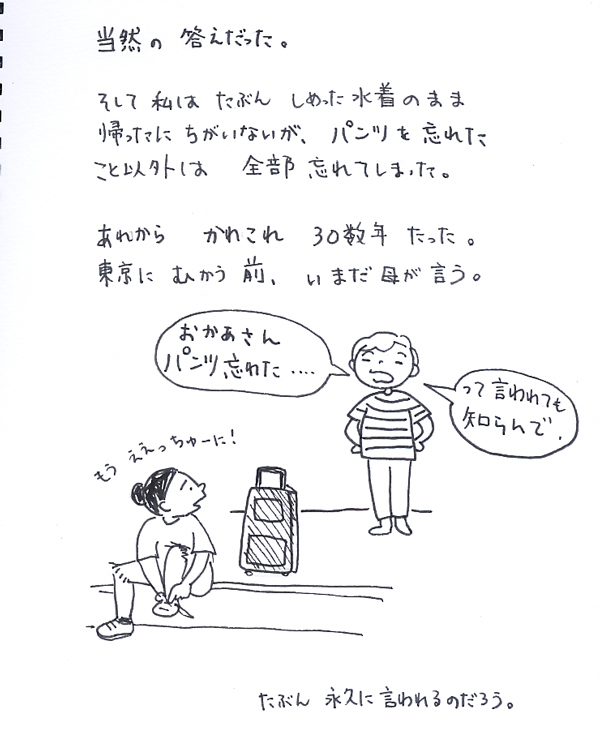 当然の 答えだった。
そして 私は たぶん しめった 水着のまま
帰ったにちがいないが、パンツを忘れた
こと以外は 全部 忘れてしまった。
あれから かれこれ 30数年 たった。
東京に むかう 前、いまだ 母が 言う。
おかあさん
パンツ忘れた‥‥
って言われても
知らんで、
もう ええっちゅーに!
たぶん 永久に言われるのだろう。